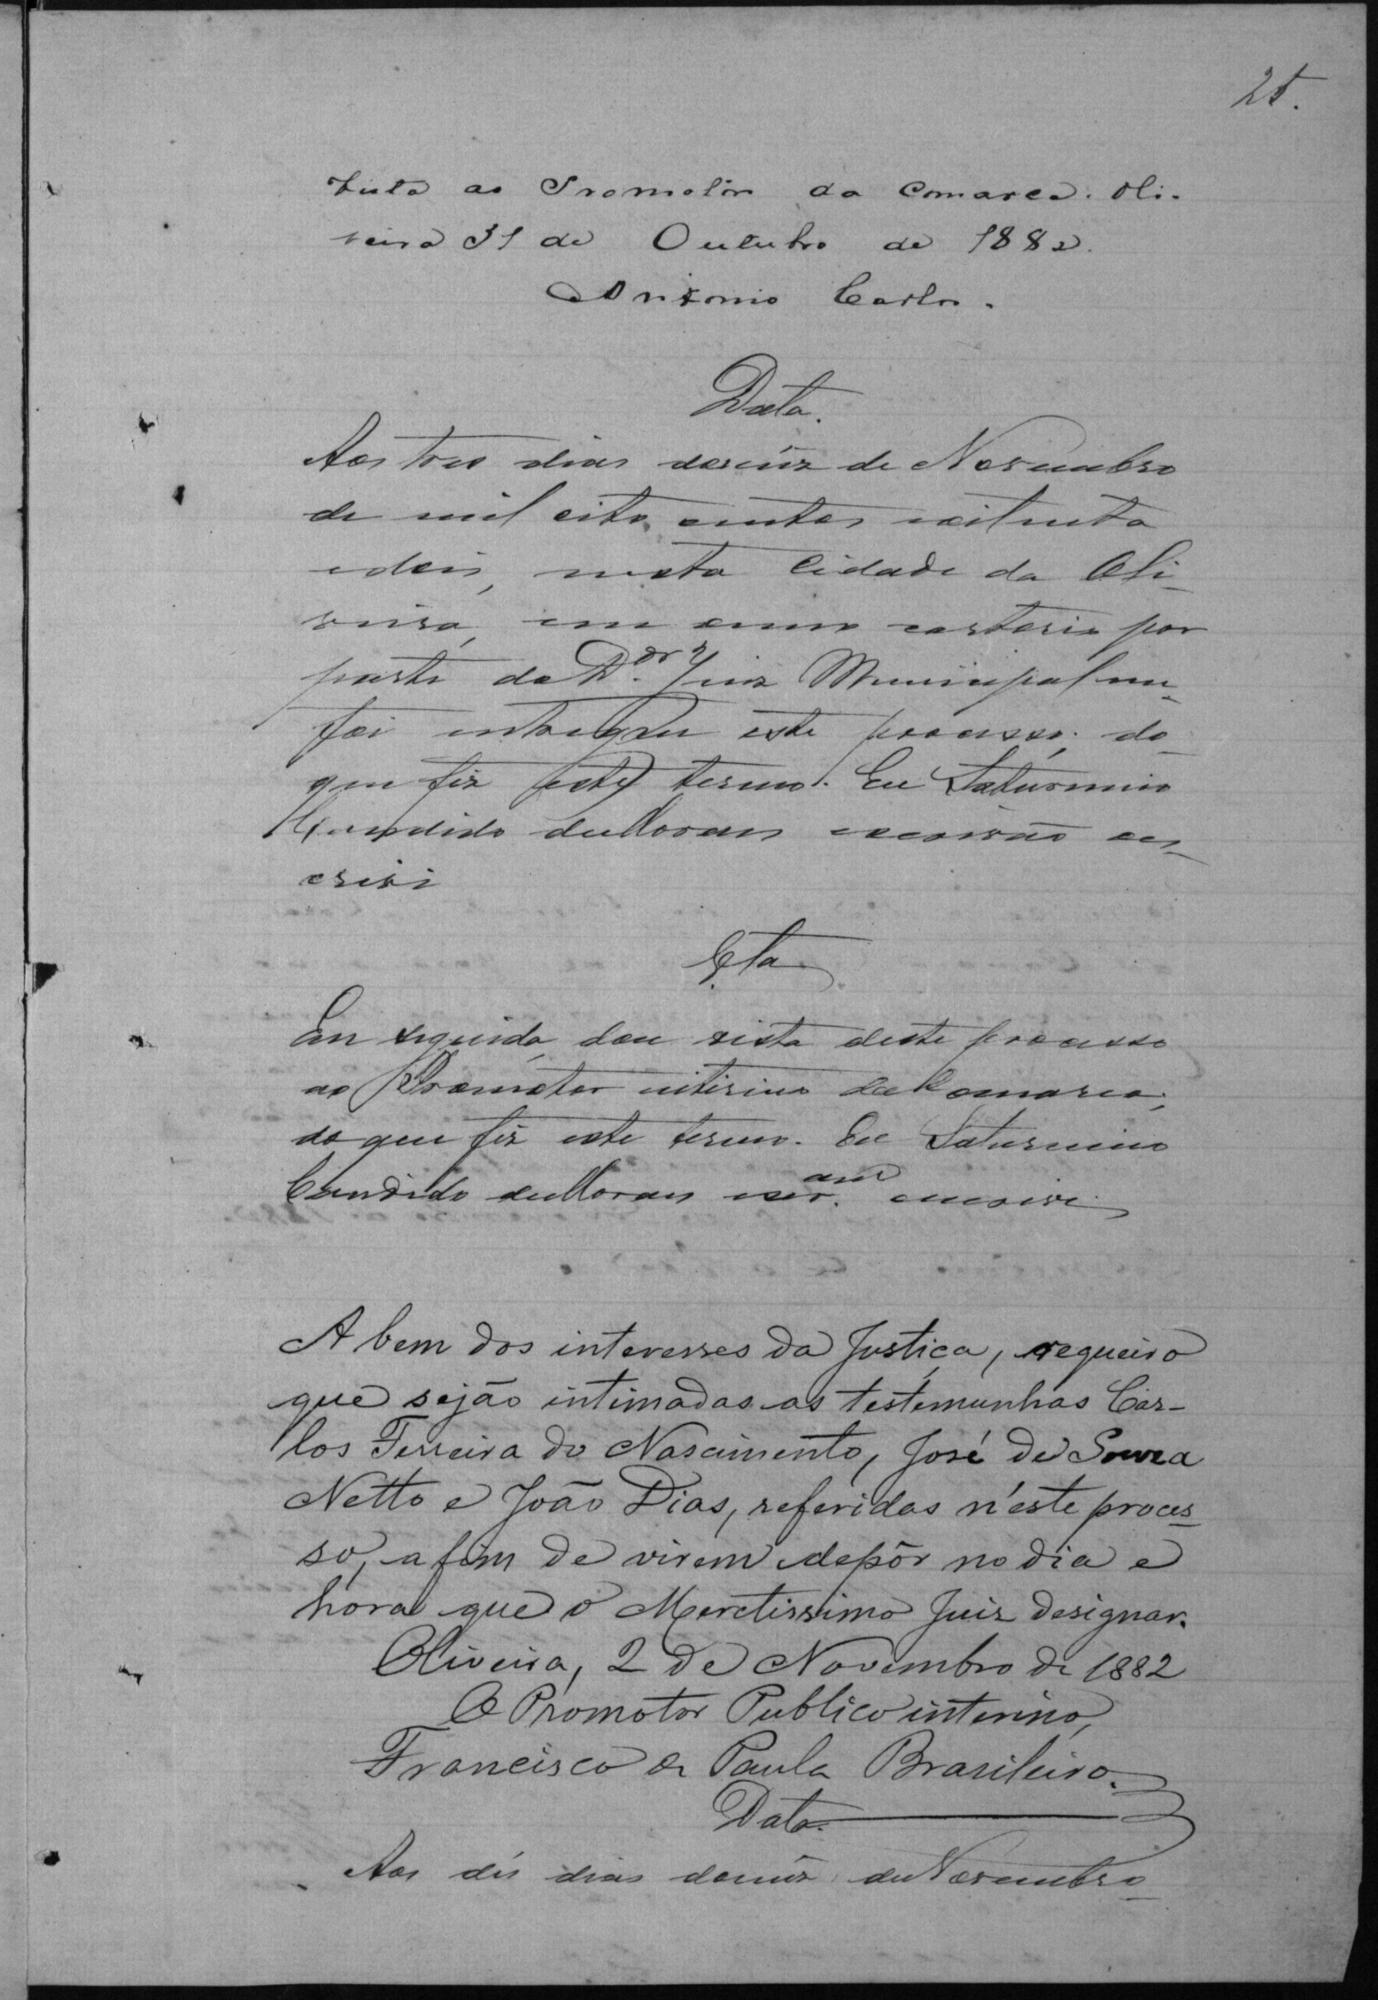 25.
Vista ao Promotôr da Comarca. Oli-
veira 31 de Outubro de 1882.
Antonio Carlos.
Data.
Aos tres dias do mez de Novembro
de mil oito centos e oitenta
e dois, nesta Cidade da Oli-
veira, em meu cartorio por
parte do D.or Juiz Municipal me
foi entregue este processo; do
que fiz este termo. Eu Saturnino
Candido de Moraes escrivão es-
crevi
Em seguida dou vista deste processo
ao Promotor interino da Comarca;
do que fiz este termo. Eu Saturnino
Candido de Moraes escr.am escrevi
A bem dos interesses da Justiça, requeiro
que sejão intimadas as testemunhas Car-
los Ferreira do Nascimento, José de Souza
Netto e João Dias, referidas n'este proces-
so, a fim de virem depôr no dia e
hora que o Meretissimo Juiz designar.
Oliveira, 2 de Novembro de 1882
O Promotor Publico interino,
Francisco de Paula Brasileiro.
Data.
Aos dés dias do mez de Novembro